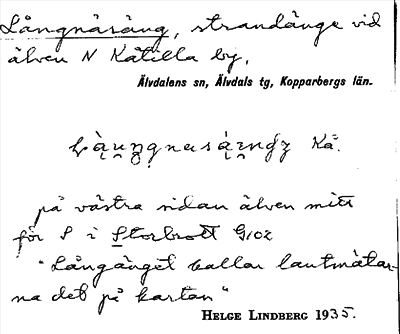 Långnäsäng, strandänge vid
älven N Kåtilla by.
Älvdalens sn, Älvdals tg, Kopparbergs län.
Kå.
på västra sidan älven mitt
för S i Storbrott G102
"Långänget kallar lantmätar-
na det på kartan"
HELGE LINDBERG 1935.